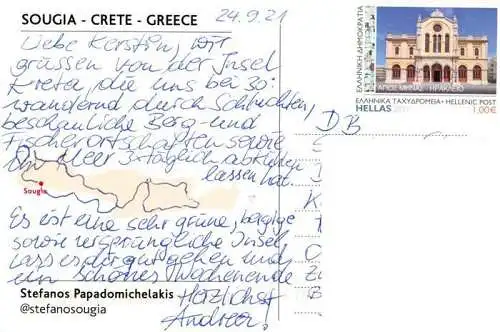 SOUGIA - CRETE - GREECE
24.9.21
Liebe Kerstin, wir
grüssen von der Insel
Kreta, die uns bei 30°
wandernd durch Schluchten,
beschauliche Berg- und
Fischerortschaften sowie
Meer 3x täglich abkühlen
lassen hat.
Sougia
Es ist eine sehr grüne, bergige
sowie ursprüngliche Insel
lass es dir gut gehen und
ein schönes Wochenende
Herzlichst
Andrea!
Stefanos Papadomichelakis
@stefanosougia
ΕΛΛΗΝΙΚΗ ΔΗΜΟΚΡΑΤΙΑ
ΑΓΙΟΣ ΜΗΝΑΣ - ΗΡΑΚΛΕΙΟ
ΕΛΛΗΝΙΚΑ ΤΑΧΥΔΡΟΜΕΙΑ • HELLENIC POST
HELLAS
1,00€
DB